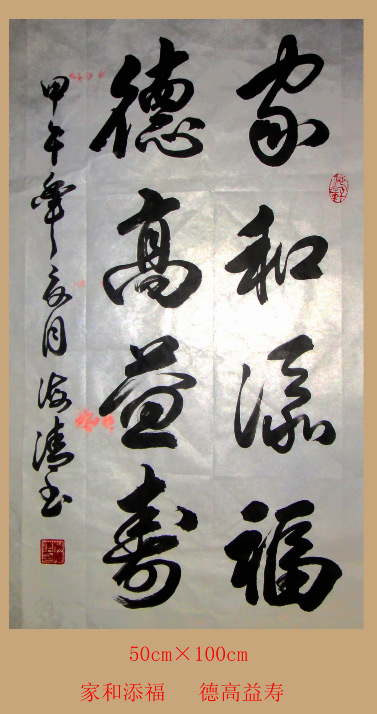 家和添福
德高益寿
甲午年亥月海清书
50cm×100cm
家和添福 德高益寿